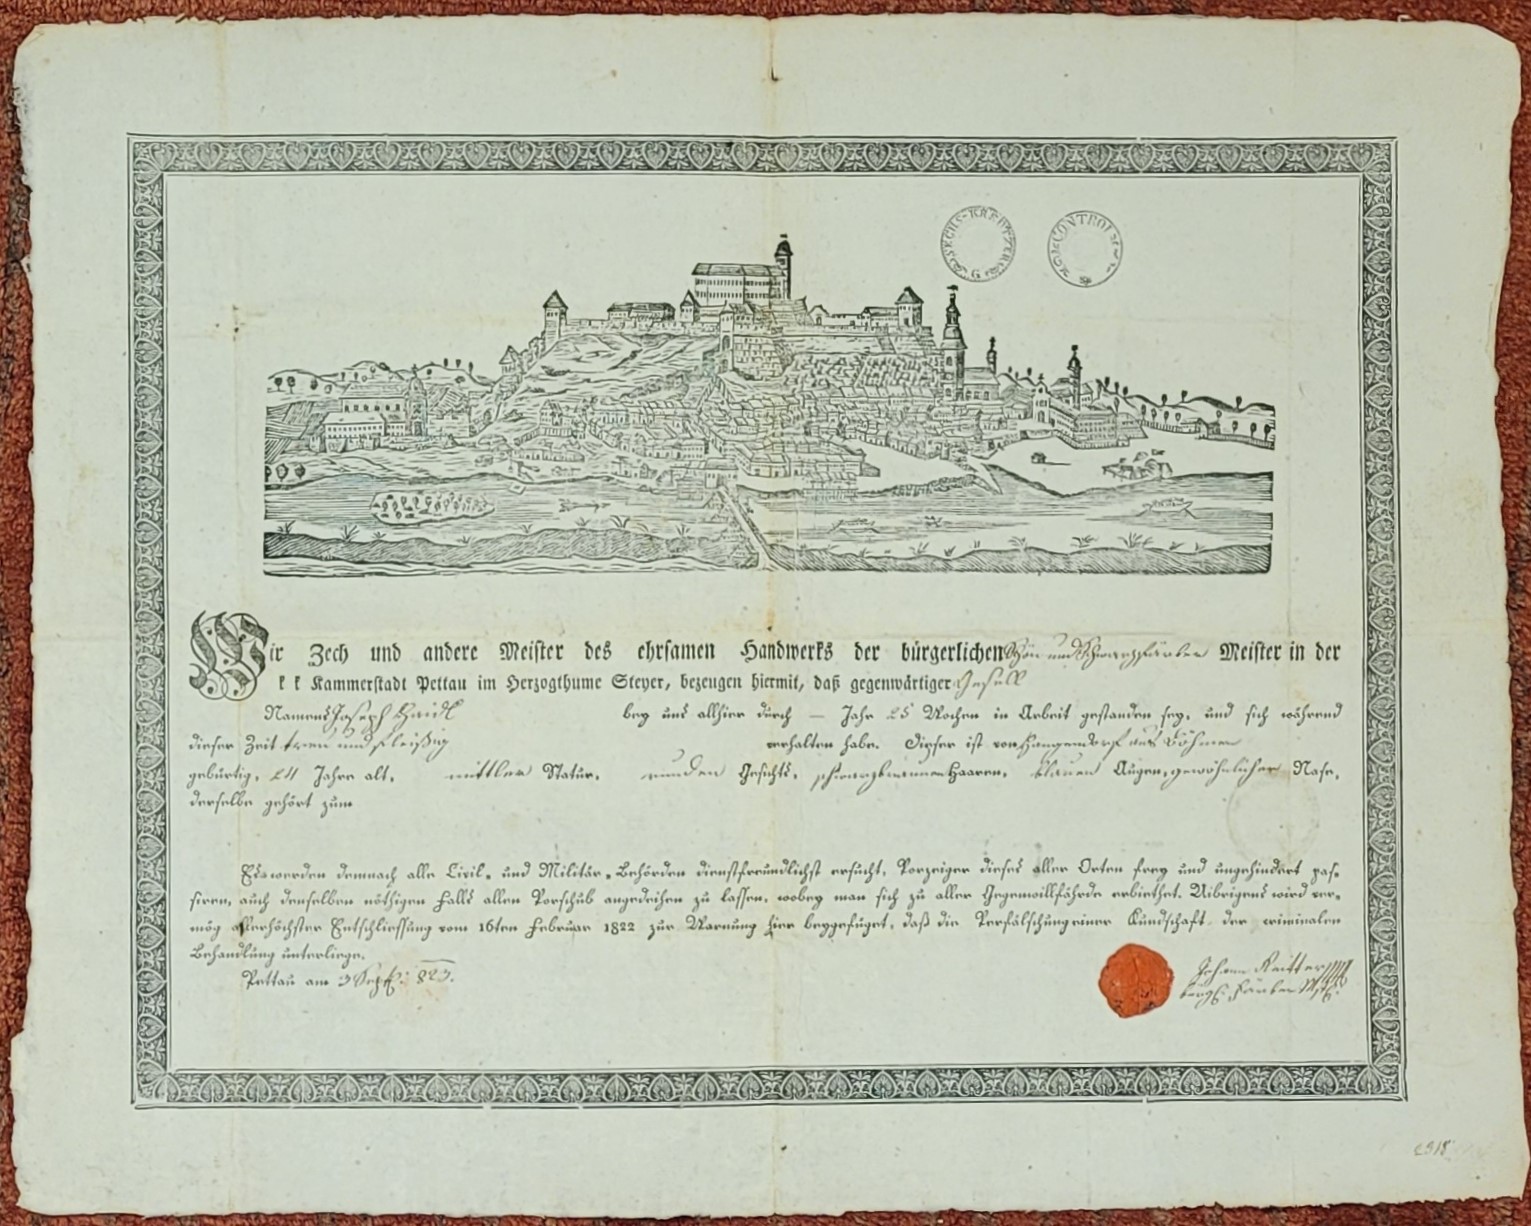 SECHS-KREUTZER G
CONTROL
Wir Zech und andere Meister des ehrsamen Handwerks der bürgerlichen Schön und Schwarzfärber Meister in der
k k Kammerstadt Pettau im Herzogthume Steyer, bezeugen hiermit, daß gegenwärtiger Gesell
Namens Joseph Haidl bey uns allhier durch — Jahr 25 Wochen in Arbeit gestanden sey, und sich während
dieser Zeit treu und fleißig verhalten habe. Dieser ist von aus Böhmen
gebürtig, 24 Jahre alt, mittler Statur, runden Gesichts, schwarzbraunen Haaren, blauen Augen, gewöhnlicher Nase,
derselbe gehört zum
Es werden demnach alle Civil- und Militär-Behörden dienstfreundlichst ersucht, Vorzeiger dieses aller Orten frey und ungehindert pas-
siren, auch denselben nöthigen Falls allen Vorschub angedeihen zu lassen, wobey man sich zu aller Gegenwillfährde erbiethet. Uibrigens wird ver-
mög allerhöchster Entschliessung vom 16ten Februar 1822 zur Warnung hier beygefüget, daß die Verfälschung einer Kundschaft der criminalen
Behandlung unterliege.
Pettau am 3 Sept: 823.
Johann Reitter
bürgl. Färber Mst: